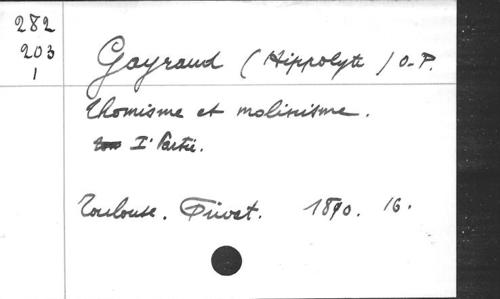 282
203
1
Gayraud (Hippolyte) O.P.
Thomisme et molinisme.
I° Partie.
Toulouse. Privat. 1890. 16.